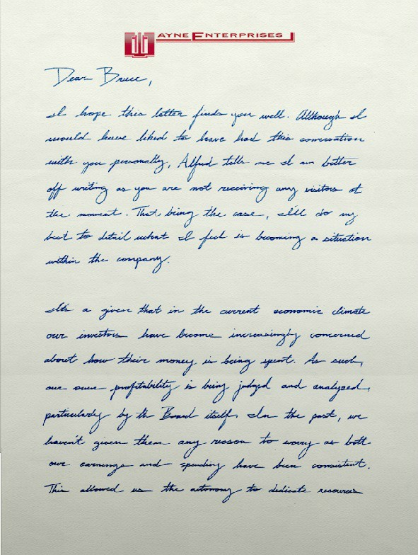 WAYNE ENTERPRISES
Dear Bruce,
I hope this letter finds you well. Although I
would have liked to have had this conversation
with you personally, Alfred tells me I am better
off writing as you are not receiving any visitors at
the moment. That being the case, I'll do my
best to detail what I feel is becoming a situation
within the company.
It's a given that in the current economic climate
our investors have become increasingly concerned
about how their money is being spent. As such,
our own profitability is being judged and analyzed,
particularly by the Board itself. In the past, we
haven't given them any reason to worry as both
our earnings and spending have been consistent.
This allowed us the autonomy to dedicate resources